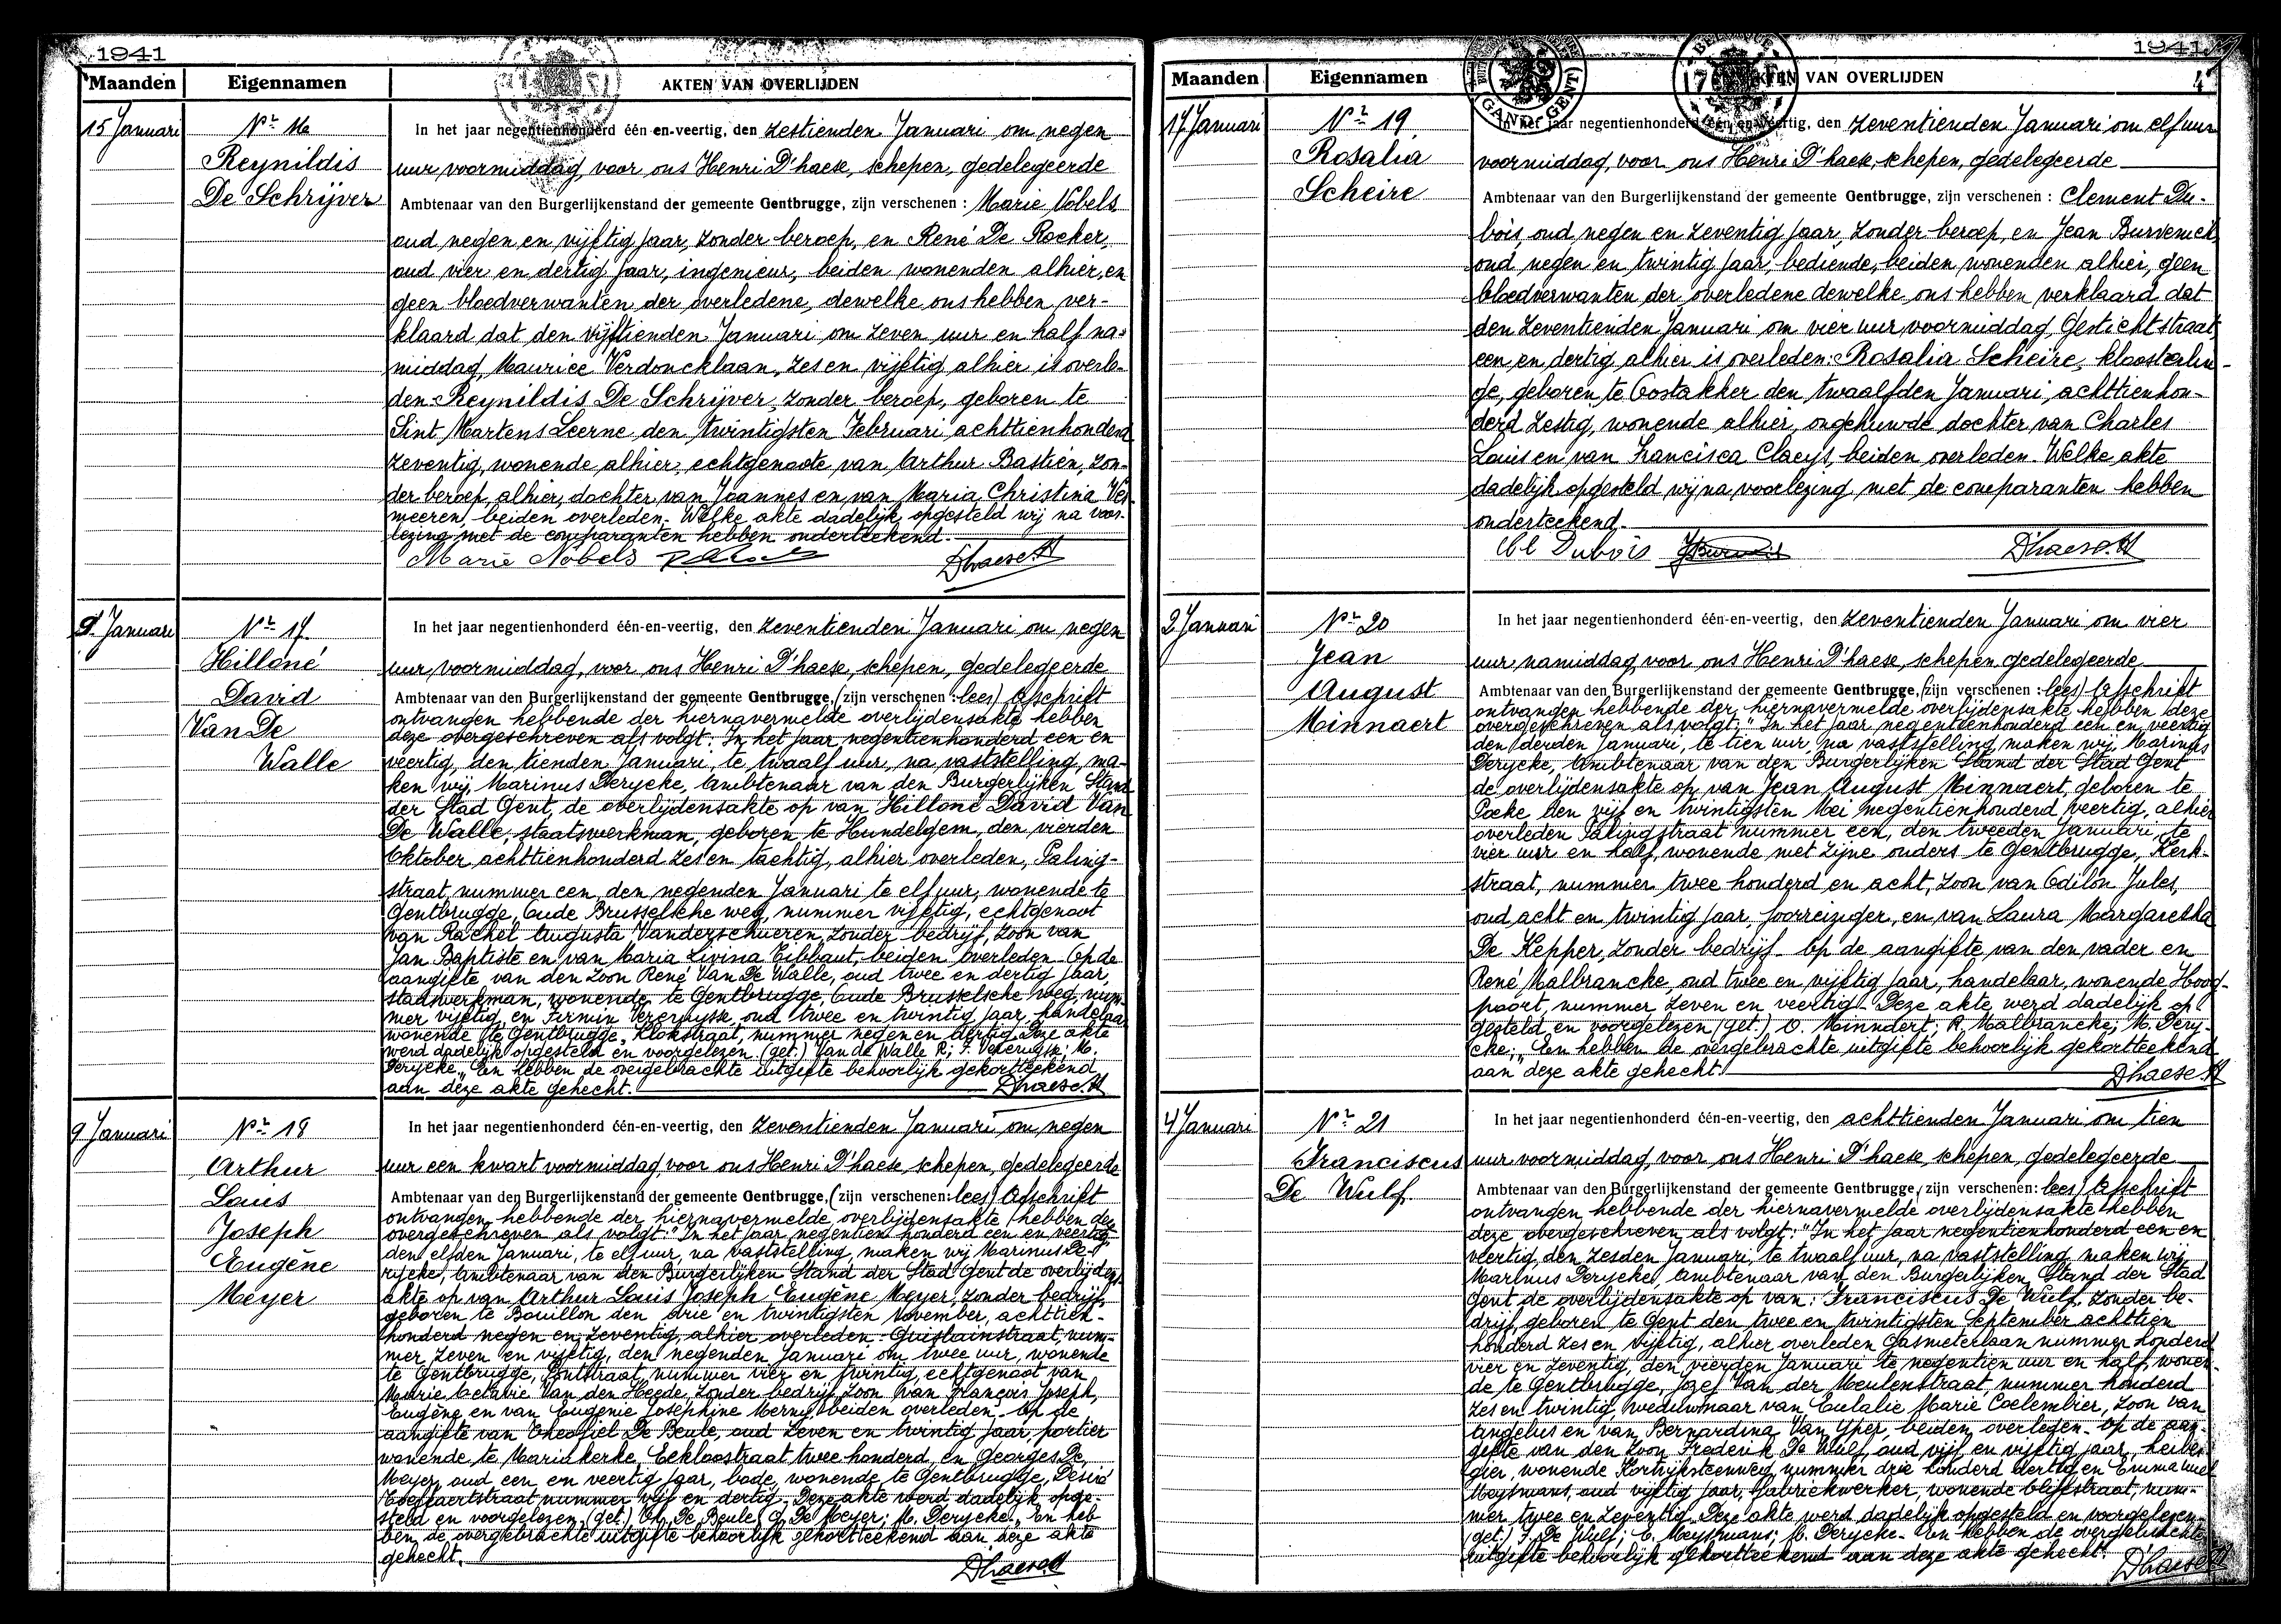 1941
Maanden
Eigennamen
AKTEN VAN OVERLIJDEN
15 Januari
Nr 16
Reynildis
De Schrijver
In het jaar negentienhonderd één-en-veertig, den zestienden Januari om negen
uur voormiddag, voor ons Henri D'haese, schepen, gedelegeerde
Ambtenaar van den Burgerlijkenstand der gemeente Gentbrugge, zijn verschenen : Marie Nobels
oud negen en vijftig jaar, zonder beroep, en René De Rocker,
oud vier en dertig jaar, ingenieur, beiden wonenden alhier, en
geen bloedverwanten der overledene, dewelke ons hebben ver-
klaard dat den vijftienden Januari om zeven uur en half na-
middag, Maurice Verdoncklaan, zes en vijftig alhier is overle-
den Reynildis De Schrijver, zonder beroep, geboren te
Sint Martens Leerne den twintigsten Februari achttienhonderd
zeventig, wonende alhier, echtgenoote van Arthur Bastien, zon-
der beroep, alhier, dochter van Joannes en van Maria Christina Ver-
meeren, beiden overleden. Welke akte dadelijk opgesteld wij na voor-
lezing met de comparanten hebben onderteekend.
Marie Nobels
Dhaese H
9 Januari
Nr 17
Hilloné
David
Van De
Walle
In het jaar negentienhonderd één-en-veertig, den zeventienden Januari om negen
uur voormiddag, voor ons Henri D'haese, schepen, gedelegeerde
Ambtenaar van den Burgerlijkenstand der gemeente Gentbrugge, (zijn verschenen : lees) Afschrift
ontvangen hebbende der hiernavermelde overlijdensakte hebben
deze overgeschreven als volgt: In het jaar negentienhonderd een en
veertig, den tienden Januari, te twaalf uur, na vaststelling, ma-
ken wij, Marinus Derycke, Ambtenaar van den Burgerlijken Stand
der Stad Gent, de overlijdensakte op van Hilloné David Van
De Walle, staatswerkman, geboren te Hundelgem, den vierden
Oktober, achttienhonderd zes en tachtig, alhier overleden, Paling-
straat, nummer een, den negenden Januari te elf uur, wonende te
Gentbrugge, Oude Brusselsche weg, nummer vijftig, echtgenoot
van Rachel Augusta Vanderschueren, zonder bedrijf, zoon van
Jan Baptiste en van Maria Livina Tibbaut, beiden overleden. Op de
aangifte van den zoon René Van De Walle, oud twee en dertig jaar,
staatswerkman, wonende te Gentbrugge, Oude Brusselsche weg, num-
mer vijftig, en Firmin Vereruysse, oud twee en twintig jaar, handelaar
wonende te Gentbrugge, Klokstraat, nummer negen en dertig. Deze akte
werd dadelijk opgesteld en voorgelezen. (get.) Van de Walle R; F. Vereruysse; M.
Derycke. En hebben de overgebrachte uitgifte behoorlijk gekortteekend
aan deze akte gehecht.
Dhaese H
9 Januari
Nr 18
Arthur
Louis
Joseph
Eugène
Meyer
In het jaar negentienhonderd één-en-veertig, den zeventienden Januari om negen
uur een kwart voormiddag, voor ons Henri D'haese, schepen, gedelegeerde
Ambtenaar van den Burgerlijkenstand der gemeente Gentbrugge, (zijn verschenen: lees) Afschrift
ontvangen hebbende der hiernavermelde overlijdensakte hebben deze
overgeschreven als volgt: "In het jaar negentien honderd een en veertig
den elfden Januari, te elf uur, na vaststelling, maken wij Marinus De-
rycke, Ambtenaar van den Burgerlijken Stand der Stad Gent de overlijdens-
akte op van Arthur Louis Joseph Eugène Meyer, zonder bedrijf,
geboren te Bouillon den drie en twintigsten November, achttien-
honderd negen en zeventig, alhier overleden Guislainstraat, num-
mer zeven en vijftig, den negenden Januari om twee uur, wonende
te Gentbrugge, Pontstraat, nummer vier en twintig, echtgenoot van
Marie Octavie Van den Heede, zonder bedrijf, zoon van François Joseph,
Eugène en van Eugenie Josephine Merny, beiden overleden. Op de
aangifte van Theofiel De Beule, oud zeven en twintig jaar, portier
wonende, te Mariakerke, Eekloostraat twee honderd, en Georges De
Meyer, oud een en veertig jaar, bode, wonende te Gentbrugge, Désiré
straat nummer vijf en dertig. Deze akte werd dadelijk opge-
steld en voorgelezen. (get.) Th. De Beule, G. De Meyer; M. Derycke. En heb-
ben de overgebrachte uitgifte behoorlijk gekortteekend aan deze akte
gehecht.
Dhaese H
1941
4
Maanden
Eigennamen
AKTEN VAN OVERLIJDEN
17 Januari
Nr 19
Rosalia
Scheire
In het jaar negentienhonderd één-en-veertig, den zeventienden Januari om elf uur
voormiddag, voor ons Henri D'haese, schepen, gedelegeerde
Ambtenaar van den Burgerlijkenstand der gemeente Gentbrugge, zijn verschenen : Clement Du-
bois, oud negen en zeventig jaar, zonder beroep, en Jean Burvenick,
oud negen en twintig jaar, bediende, beiden wonenden alhier, geen
bloedverwanten der overledene dewelke ons hebben verklaard dat
den zeventienden Januari om vier uur voormiddag, Gestichtstraat,
een en dertig alhier is overleden: Rosalia Scheire, kloosterlin-
ge, geboren te Oostakker den twaalfden Januari, achttienhon-
derd zestig, wonende alhier, ongehuwde dochter van Charles
Louis en van Francisca Claeys, beiden overleden. Welke akte
dadelijk opgesteld wij na voorlezing met de comparanten hebben
onderteekend.
Cl Dubois
D'haese. H
2 Januari
Nr 20
Jean
August
Minnaert
In het jaar negentienhonderd één-en-veertig, den zeventienden Januari om vier
uur, namiddag voor ons Henri D'haese, schepen, gedelegeerde
Ambtenaar van den Burgerlijkenstand der gemeente Gentbrugge, (zijn verschenen : lees) Afschrift
ontvangen hebbende der hiernavermelde overlijdensakte hebben deze
overgeschreven als volgt: "In het jaar negentienhonderd een en veertig
den derden Januari, te tien uur, na vaststelling, maken wij, Marinus
Derycke, Ambtenaar van den Burgerlijken Stand der Stad Gent
de overlijdensakte op van Jean August Minnaert, geboren te
Poeke den vijf en twintigsten Mei negentienhonderd veertig, alhier
overleden Palingstraat nummer een, den tweeden Januari, te
vier uur en half, wonende met zijne ouders te Gentbrugge, Kerk-
straat, nummer twee honderd en acht, zoon van Odilon Jules,
oud acht en twintig jaar, foorreiziger, en van Laura Margaretha
De Kepper, zonder bedrijf. Op de aangifte van den vader en
René Malbrancke, oud twee en vijftig jaar, handelaar, wonende Hoog-
poort, nummer zeven en veertig. Deze akte werd dadelijk op
gesteld en voorgelezen (get.) O. Minnaert; R. Malbrancke; M. Dery-
cke; "En hebben de overgebrachte uitgifte behoorlijk gekortteekend
aan deze akte gehecht.
Dhaese. H
4 Januari
Nr 21
Franciscus
De Wulf
In het jaar negentienhonderd één-en-veertig, den achttienden Januari om tien
uur voormiddag, voor ons Henri D'haese, schepen, gedelegeerde
Ambtenaar van den Burgerlijkenstand der gemeente Gentbrugge, (zijn verschenen: lees) Afschrift
ontvangen hebbende der hiernavermelde overlijdensakte hebben
deze overgeschreven als volgt: "In het jaar negentienhonderd een en
veertig, den zesden Januari, te twaalf uur, na vaststelling maken wij
Marinus Derycke, Ambtenaar van den Burgerlijken Stand der Stad
Gent de overlijdensakte op van: Franciscus De Wulf, zonder be-
drijf, geboren te Gent den twee en twintigsten September achttien
honderd zes en vijftig, alhier overleden Gasmeterlaan nummer honderd
vier en zeventig, den vierden Januari te negentien uur en half, wonen-
de te Gentbrugge, Jozef Van der Meulenstraat, nummer honderd
zes en twintig, weduwnaar van Eulalie Marie Coelembier, zoon van
Angelus en van Bernardina Van Yper, beiden overleden. Op de aan-
gifte van den zoon Frederik De Wulf, oud vijf en vijftig jaar, herber-
gier, wonende Kortrijksteenweg, nummer drie honderd dertig en Emmanuel
Meysmans, oud vijftig jaar, fabriekwerker, wonende Blijfstraat, num-
mer twee en zeventig. Deze akte werd dadelijk opgesteld en voorgelezen.
(get.) F. De Wulf; E. Meysmans; M. Derycke. En hebben de overgebrachte
uitgifte behoorlijk gekortteekend aan deze akte gehecht.
D'haese H